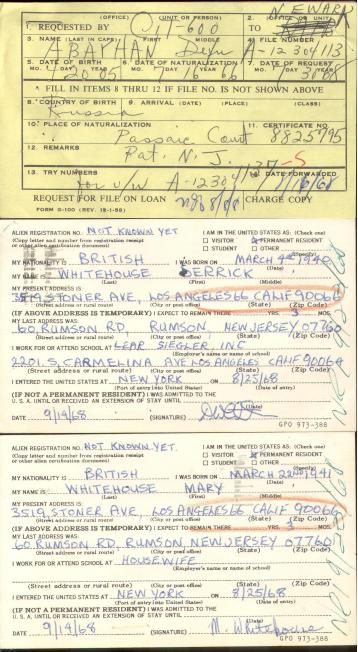 (OFFICE) (UNIT OR PERSON) NEWARK
1. REQUESTED BY 600 2. TO (OFFICE OR UNIT)
3. NAME (LAST IN CAPS) FIRST MIDDLE 4. FILE NUMBER
A-12 304 113
5. DATE OF BIRTH 6. DATE OF NATURALIZATION 7. DATE OF REQUEST
MO. DAY YR. MO. DAY YR. MO. DAY YR.
4 20 05 7 16 66 7 31 68
FILL IN ITEMS 8 THRU 12 IF FILE NO. IS NOT SHOWN ABOVE
8. COUNTRY OF BIRTH 9. ARRIVAL (DATE) (PLACE) (CLASS)
Russia
10. PLACE OF NATURALIZATION 11. CERTIFICATE NO.
Passaic Court 8825795
12. REMARKS Pat. N.J.
13. TRY NUMBERS DATE FORWARDED
for u/w A-12304137-S 8/16/68
REQUEST FOR FILE ON LOAN CHARGE COPY
FORM G-100 (REV. 12-1-59)
ALIEN REGISTRATION NO. NOT KNOWN YET I AM IN THE UNITED STATES AS: (Check one)
(Copy letter and number from registration receipt VISITOR PERMANENT RESIDENT
or other alien certification document) STUDENT OTHER (Specify)
MY NATIONALITY IS BRITISH I WAS BORN ON MARCH 1940
MY NAME IS WHITEHOUSE DERRICK
(Last) (First) (Middle)
MY PRESENT ADDRESS IS
3519 STONER AVE, LOS ANGELES 66 CALIF 90066
(Street address or rural route) (City or post office) (State) (Zip Code)
(IF ABOVE ADDRESS IS TEMPORARY) I EXPECT TO REMAIN THERE YRS. MOS.
MY LAST ADDRESS WAS:
60, RUMSON RD, RUMSON, NEW JERSEY 07760
(Street address or rural route) (City or post office) (State) (Zip Code)
I WORK FOR OR ATTEND SCHOOL AT LEAR SIEGLER, INC
(Employer's name or name of school)
2201 S. CARMELINA AVE LOS ANGELES CALIF 90064
(Street address or rural route) (City or post office) (State) (Zip Code)
I ENTERED THE UNITED STATES AT NEW YORK ON 8/25/68
(Port of entry into United States) (Date of entry)
(IF NOT A PERMANENT RESIDENT) I WAS ADMITTED TO THE
U. S. A. UNTIL OR RECEIVED AN EXTENSION OF STAY UNTIL (Date)
DATE 9/14/68 (SIGNATURE)
GPO 973-388
ALIEN REGISTRATION NO. NOT KNOWN YET. I AM IN THE UNITED STATES AS: (Check one)
(Copy letter and number from registration receipt VISITOR PERMANENT RESIDENT
or other alien certification document) STUDENT OTHER (Specify)
MY NATIONALITY IS BRITISH I WAS BORN ON MARCH 22ND 1941
MY NAME IS WHITEHOUSE MARY
(Last) (First) (Middle)
MY PRESENT ADDRESS IS
3519, STONER AVE, LOS ANGELES 66 CALIF 90066
(Street address or rural route) (City or post office) (State) (Zip Code)
(IF ABOVE ADDRESS IS TEMPORARY) I EXPECT TO REMAIN THERE YRS. MOS.
MY LAST ADDRESS WAS:
60, RUMSON RD, RUMSON, NEW JERSEY 07760
(Street address or rural route) (City or post office) (State) (Zip Code)
I WORK FOR OR ATTEND SCHOOL AT HOUSEWIFE
(Employer's name or name of school)
(Street address or rural route) (City or post office) (State) (Zip Code)
I ENTERED THE UNITED STATES AT NEW YORK ON 8/25/68
(Port of entry into United States) (Date of entry)
(IF NOT A PERMANENT RESIDENT) I WAS ADMITTED TO THE
U. S. A. UNTIL OR RECEIVED AN EXTENSION OF STAY UNTIL (Date)
DATE 9/14/68 (SIGNATURE) M. Whitehouse
GPO 973-388